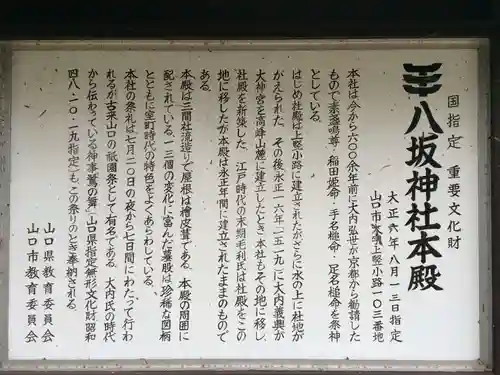 国指定 重要文化財
八坂神社本殿
大正六年八月一三日指定
山口市大字上竪小路一〇三番地
本社は今から六〇〇余年前に大内弘世が京都から勧請した
もので素盞嗚尊・稲田姫命・手名槌命・足名槌命を祭神
としている。
はじめ社殿は上竪小路に建立されたがさらに水の上に社地が
かえられた。その後永正一六年(一五一九)に大内義興が
大神宮を高峰山麓に建立したとき、本社もその地に移し、
社殿を新築した。江戸時代の末期毛利氏は社殿をこの
地に移したが本殿は永正年間に建立されたままのもので
ある。
本殿は三間社流造りで屋根は檜皮葺である。本殿の周囲に
配されている一三個の変化に富んだ蟇股は珍稀な図柄
とともに室町時代の特色をよくあらわしている。
本社の祭礼は七月二〇日の夜から七日間にわたって行わ
れるが古来山口の祇園祭として有名である。大内氏の時代
から伝わっている神事「鷺の舞」(山口県指定無形文化財昭和
四八・二〇・二九指定)も、この祭りのとき奉納される。
山口県教育委員会
山口市教育委員会